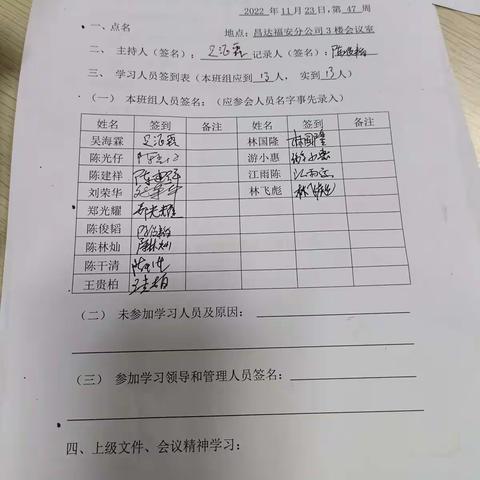 2022 年 11 月 23 日,第 47 周
一、点名 地点:昌达福安分公司3楼会议室
二、 主持人(签名): 记录人(签名):
三、 学习人员签到表(本班组应到 13 人, 实到 13 人)
(一) 本班组人员签名:(应参会人员名字事先录入)
姓名 签到 备注 姓名 签到 备注
吴海霖 林国隆 林国隆
陈光仔 游小惠 游小惠
陈建祥 陈建祥 江雨陈
刘荣华 刘荣华 林飞彪 林飞彪
郑光耀 郑光耀
陈俊韬
陈林灿 陈林灿
陈干清
王贵柏 王贵柏
(二) 未参加学习人员及原因:
(三) 参加学习领导和管理人员签名:
四、上级文件、会议精神学习: